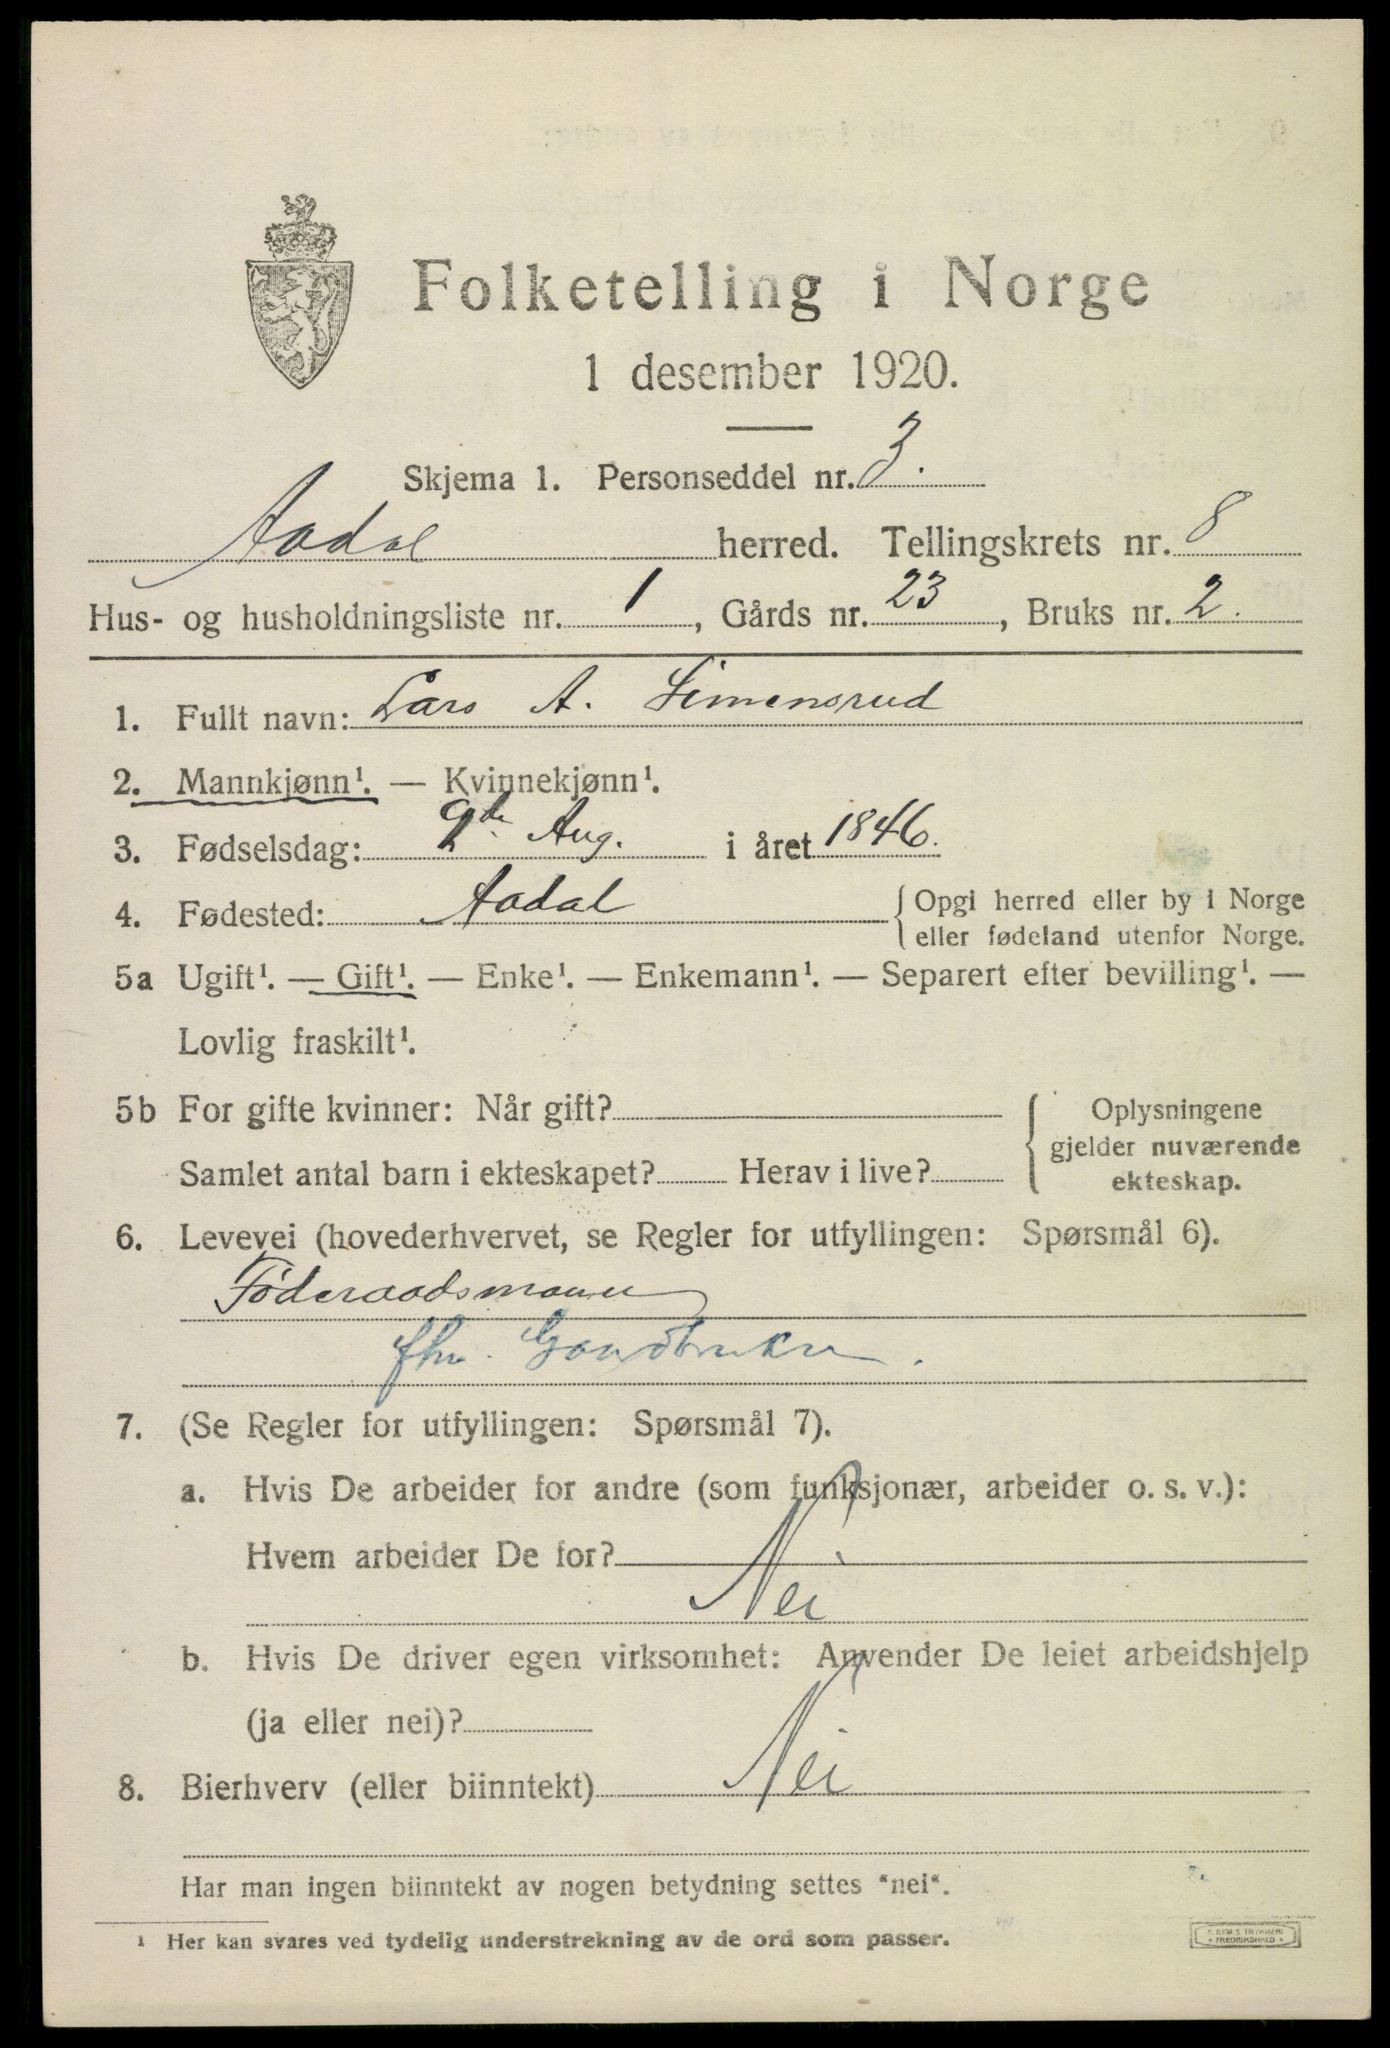 Folketelling i Norge
1 desember 1920.
Skjema 1. Personseddel nr. 3.
Aadal herred. Tellingskrets nr. 8
Hus- og husholdningsliste nr. 1, Gårds nr. 23, Bruks nr. 2.
1. Fullt navn: Lars A. Simensrud
2. Mannkjønn¹. — Kvinnekjønn¹.
3. Fødselsdag: 9de Aug. i året 1846.
4. Fødested: Aadal {Opgi herred eller by i Norge
eller fødeland utenfor Norge.
5a Ugift¹. — Gift¹. — Enke¹. — Enkemann¹. — Separert efter bevilling¹. —
Lovlig fraskilt¹.
5b For gifte kvinner: Når gift?
Samlet antal barn i ekteskapet? Herav i live?
{Oplysningene
gjelder nuværende
ekteskap.
6. Levevei (hovederhvervet, se Regler for utfyllingen: Spørsmål 6).
Föderaadsmann
fhv. Gaardbruker.
7. (Se Regler for utfyllingen: Spørsmål 7).
a. Hvis De arbeider for andre (som funksjonær, arbeider o. s. v.):
Hvem arbeider De for?
Nei
b. Hvis De driver egen virksomhet: Anvender De leiet arbeidshjelp
(ja eller nei)?
8. Bierhverv (eller biinntekt) Nei
Har man ingen biinntekt av nogen betydning settes "nei".
¹ Her kan svares ved tydelig understrekning av de ord som passer.
SEM'S TRYKKERI
FREDRIKSHALD